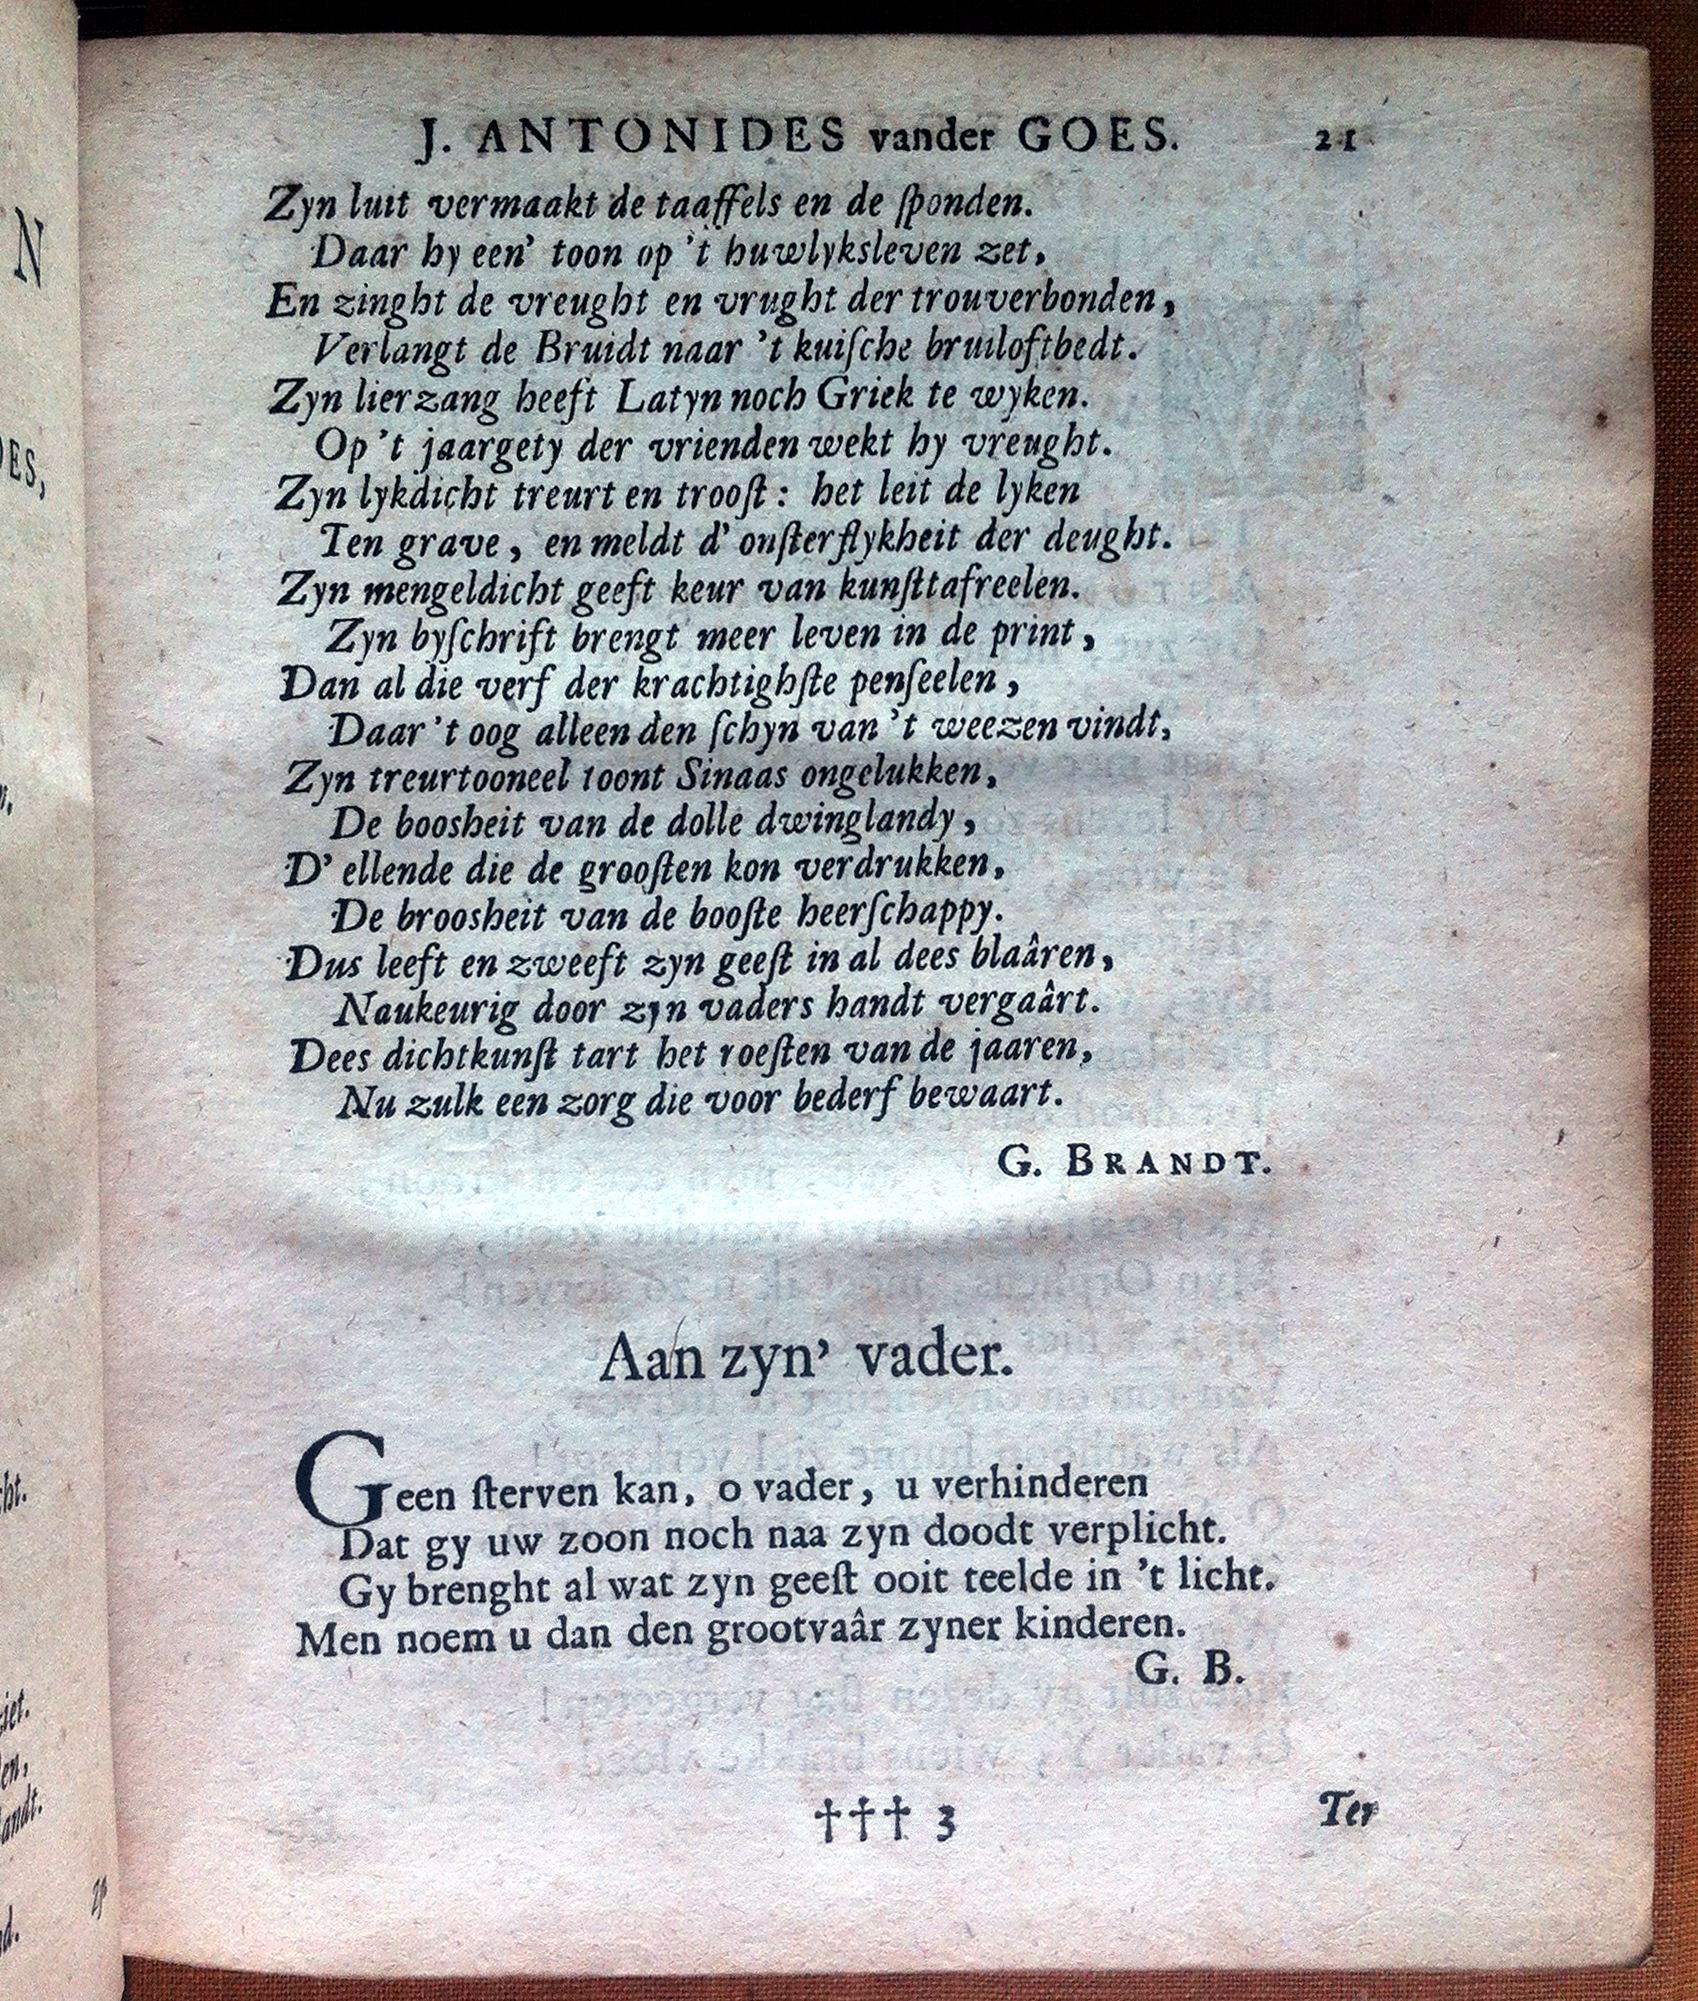 J. ANTONIDES vander GOES. 21
Zyn luit vermaakt de taaffels en de ſponden.
Daar hy een' toon op 't huwlyksleven zet,
En zinght de vreught en vrught der trouverbonden,
Verlangt de Bruidt naar 't kuiſche bruiloftbedt.
Zyn lierzang heeft Latyn noch Griek te wyken.
Op 't jaargety der vrienden wekt hy vreught.
Zyn lykdicht treurt en trooſt: het leit de lyken
Ten grave, en meldt d' onſterflykheit der deught.
Zyn mengeldicht geeft keur van kunſttafreelen.
Zyn byſchrift brengt meer leven in de print,
Dan al die verf der krachtighſte penſeelen,
Daar 't oog alleen den ſchyn van 't weezen vindt,
Zyn treurtooneel toont Sinaas ongelukken,
De boosheit van de dolle dwinglandy,
D' ellende die de grooſten kon verdrukken,
De broosheit van de booſte heerſchappy.
Dus leeft en zweeft zyn geeſt in al dees blaâren,
Naukeurig door zyn vaders handt vergaârt.
Dees dichtkunſt tart het roeſten van de jaaren,
Nu zulk een zorg die voor bederf bewaart.
G. BRANDT.
Aan zyn' vader.
Geen ſterven kan, o vader, u verhinderen
Dat gy uw zoon noch naa zyn doodt verplicht.
Gy brenght al wat zyn geeſt ooit teelde in 't licht.
Men noem u dan den grootvaâr zyner kinderen.
G. B.
††† 3 Ter